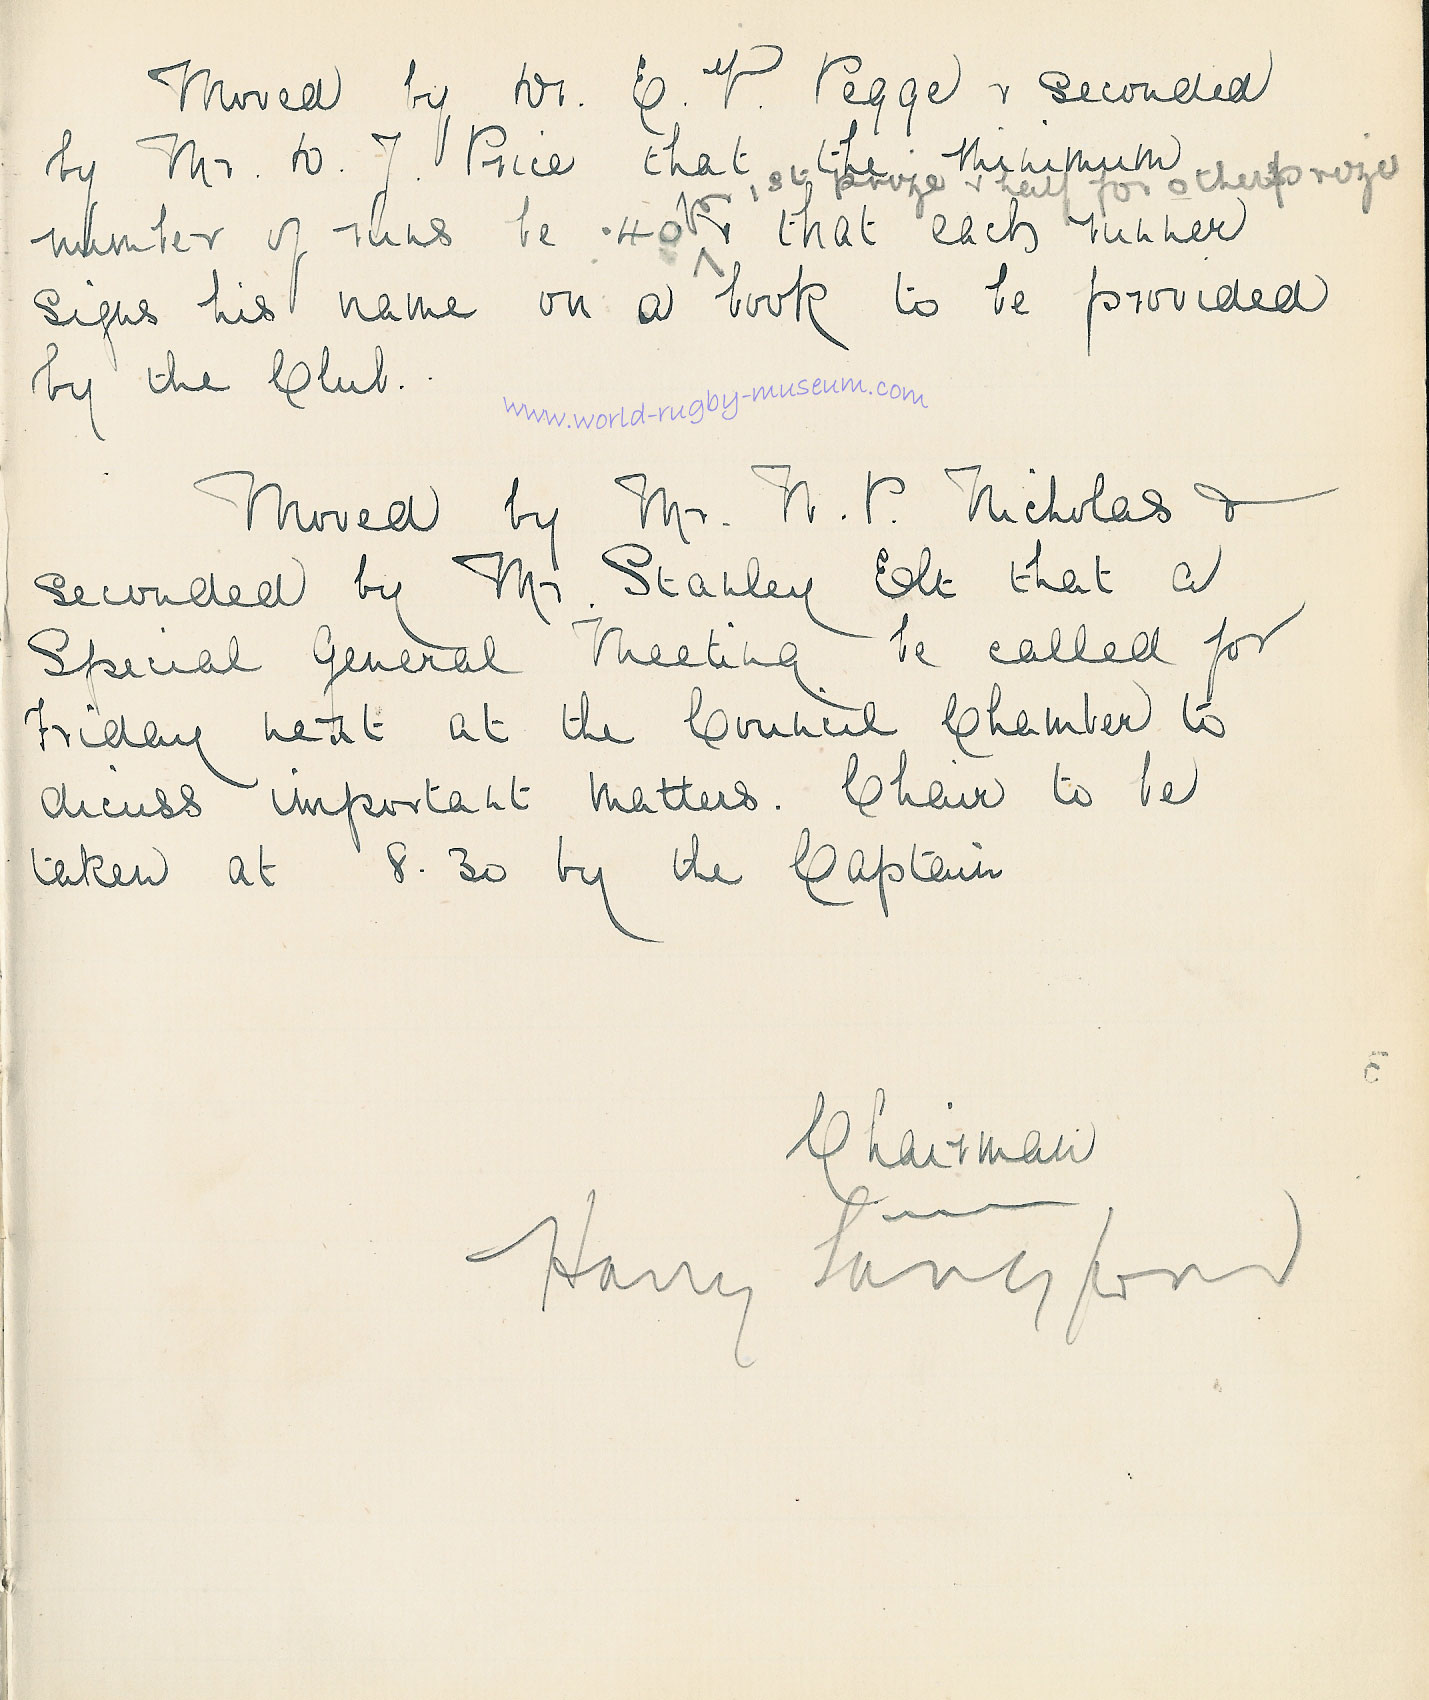 Moved by Dr. E. V. Pegge & seconded
by Mr. D. J. Price that the minimum
for 1st prize & half for other prize
number of runs be 40 & that each runner
signs his name on a book to be provided
by the Club.
www.world-rugby-museum.com
Moved by Mr. W. P. Nicholas &
seconded by Mr. Stanley Elt that a
Special General Meeting be called for
Friday next at the Council Chamber to
dicuss important matters. Chair to be
taken at 8.30 by the Captain
Chairman
Harry